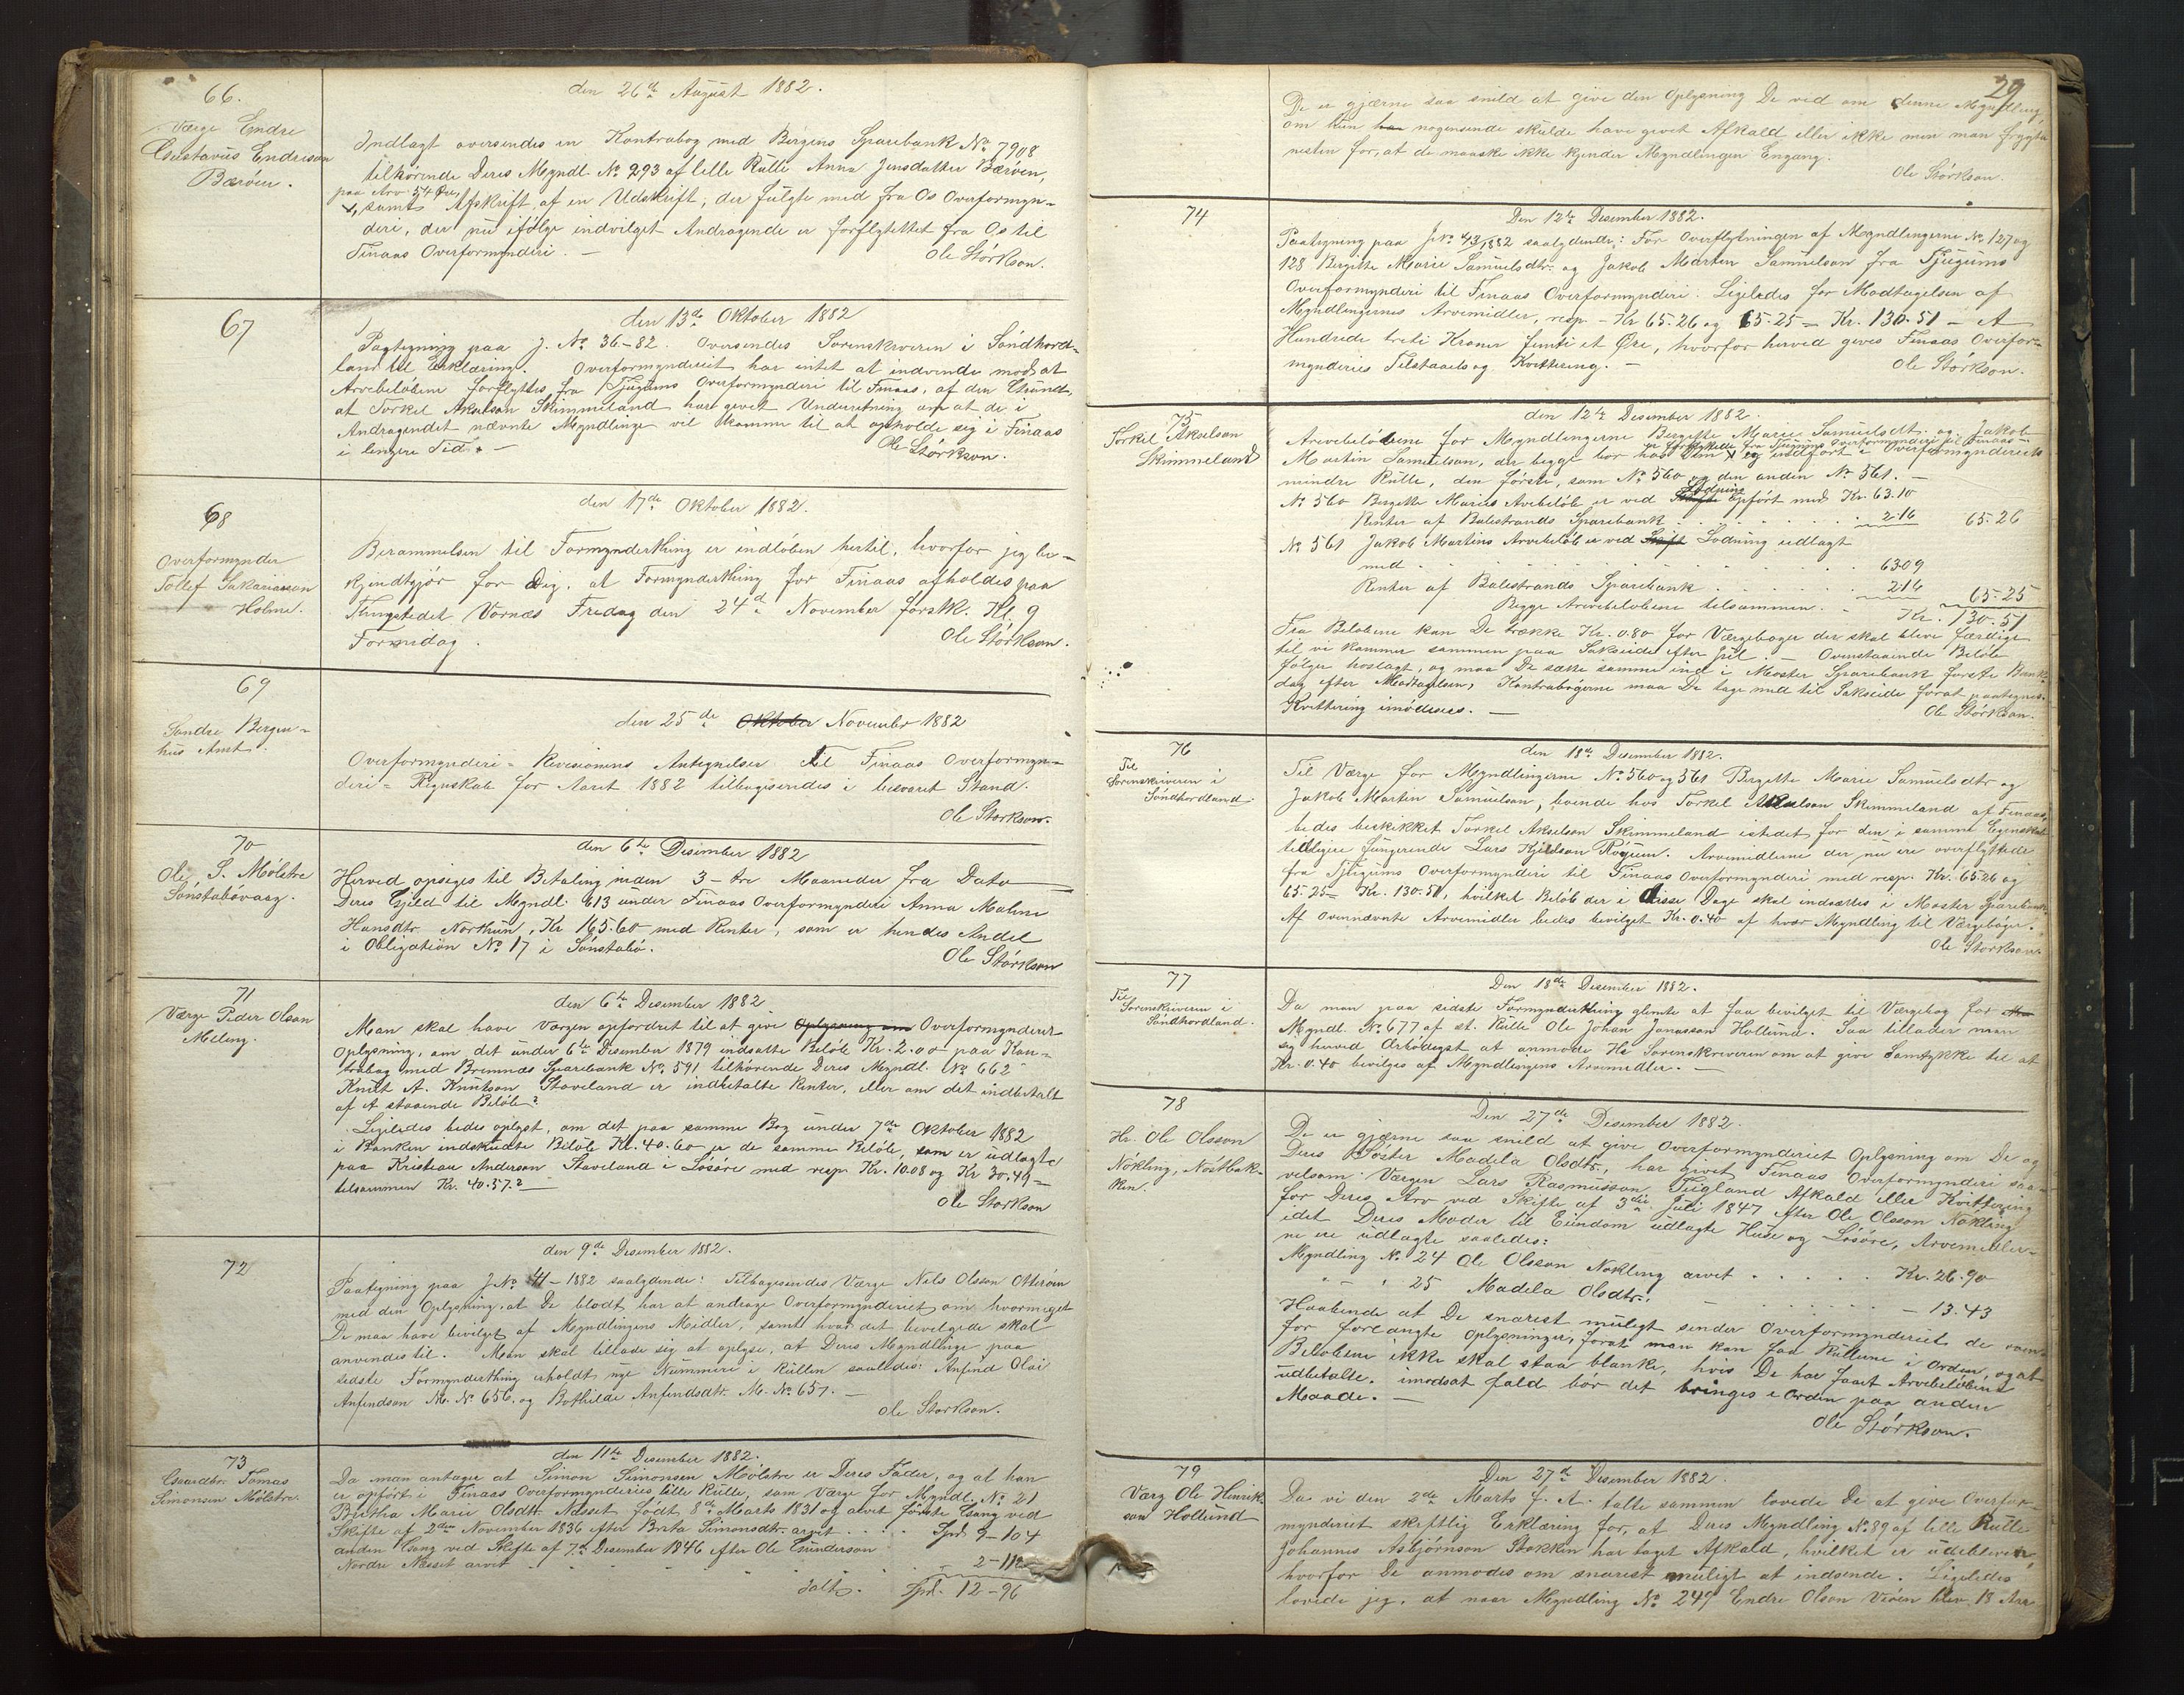 66.
Værge Endre
Gustavus Endreson
Børøen.
den 26de August 1882.
Indlagt oversendes en Kontrabog med Bergens Sparebank No 7908
tilhørende Deres Myndl. No 293 af lille Rulle Anna Jensdatter Børøen,
paa Arv 54 Øre,
samt Afskrift af en Udskrift, der fulgte med fra Os Overformyn-
deri, der nu ifølge indvilget Andragende er forflyttet fra Os til
Finaas Overformynderi. —
Ole Störkson.
67
den 13de Oktober 1882
Paategning paa J. No 36-82. Oversendes Sorenskriveren i Söndhord-
land til Erklæring. Overformynderiet har intet at indvende mod at
Arvebeløbene forflyttes fra Tjugums Overformynderi til Finaas, af den Grund,
at Torkel Akselson Skimmeland har givet Underretning om at de i
Andragendet nævnte Myndlinge vil komme til at opholde sig i Finaas
i længere Tid. —
Ole Störkson.
68
Overformynder
Tollef Sakariasson
Holme.
den 17de Oktober 1882.
Berammelsen til Formynderthing er indløben hertil, hvorfor jeg be-
kjendtgjør for Dig, at Formynderthing for Finaas afholdes paa
Thingstedet Vornæs Fredag den 24de November førstk. Kl. 9
Formidag.
Ole Störkson.
69
Søndre Bergen-
hus Amt.
den 25de Oktober November 1882
Overformynderi-Revisionens Antegnelser til Finaas Overformyn-
deri-Regnskab for Aaret 1882 tilbagesendes i besvaret Stand.
Ole Störkson.
70
Ole S. Mølstre
Sønstabøvaag.
den 6te Desember 1882
Herved opsiges til Betaling inden 3-tre Maaneder fra Dato
Deres Gjeld til Myndl. 613 under Finaas Overformynderi Anna Malene
Hansdtr. Northun, Kr 165.60 med Renter, som er hendes Andel
i Obligation No 17 i Sønstabø.
Ole Störkson
71
Værge Peder Olson
Meling.
den 6te Desember 1882
Man skal have Værgen opfordret til at give Oplysning om Overformynderiet
Oplysning, om det under 6te Desember 1879 indsatte Beløb Kr. 2.00 paa Kon-
trabog med Bremnæs Sparebank No 591 tilhørende Deres Myndl. No 662
Knut A. Knutson Staveland er indbetalte Renter, eller om det indbetalt
af et staaende Beløb?
Ligeledes bedes oplyst, om det paa samme Bog under 7de Oktober 1882
i Banken indskudte Beløb Kr. 40.60 er de samme Beløb, som er udlagte
paa Kristian Anderson Staveland i Løsøre med resp. Kr. 10.08 og Kr 30.49 =
tilsammen Kr. 40.57.? —
Ole Störkson
72
den 9de Desember 1882.
Paategning paa J No 41-1882 saalydende: Tilbagesendes Værge Nils Olsson Otterøen
med den Oplysning, at De blodt har at andrage Overformynderiet om hvormeget
De maa have bevilget af Myndlingens Midler, samt hvad det bevilgede skal
anvendes til. Man skal tillade sig at oplyse, at Deres Myndlinge paa
sidste Formynderthing erholdt nye Nummere i Rullen saaledes: Anfind Olai
Anfindson M. No 656. og Bothilde Anfindsdtr. M. No 657. —
Ole Störkson.
73
Gaardbr. Tomas
Simonsen Mølstre.
den 11te Desember 1882.
Da man antager at Simon Simonsen Mølstre er Deres Fader, og at han
er opført i Finaas Overformynderies lille Rulle, som Værge for Myndl. No 21
Bertha Marie Olsdtr. Næsset, født 8de Marts 1831 og arvet første Gang ved
Skifte af 2den November 1836 efter Brita Simonsdtr. arvet . . . . Spd. 9-104
anden Gang ved Skifte af 7de Desember 1846 efter Ole Gunderson
Nordre Næsset arvet . . . . . . . . . . 2-112
Ialt. Spd. 12-96
29
De er gjærne saa snild at give den Oplysning De ved om denne Myndling,
om hun har nogensinde skulde have givet Afkald eller ikke men man frygter
nesten for, at de maaske ikke kjender Myndlingen Engang.
Ole Störkson.
74
Den 12te Desember 1882.
Paategning paa J. No 43/1882 saalydende: For Overflytningen af Myndlingerne No 127 og
128 Bergitte Marie Samuelsdtr. og Jakob Martin Samuelson fra Tjugums
Overformynderi til Finaas Overformynderi. Ligeledes for Modtagelsen af
Myndlingernes Arvemidler, resp - Kr 65.26 og 65.25 = Kr. 130.51 - Et
Hundrede treti Kroner femti et Øre, hvorfor herved gives Finaas Overfor-
mynderies Tilstaaelse og Kvittering. —
Ole Störkson.
75
Torkel Akselson
Skimmeland
den 12te Desember 1882.
Arvebeløbene for Myndlingerne Bergette Marie Samuelsdtr. og Jakob
er forflyttede fra Tjugums Overformynderi til Finaas
Martin Samuelson, der begge bor hos Dem og indført i Overformynderiets
mindre Rulle, den første, som No 560 og den anden No 561. —
No 560 Bergette Maries Arvebeløb er ved Skifte Lodning opført med Kr. 63.10
Renter af Balestrands Sparebank . . . . . . 2.16 65.26
No 561 Jakob Martins Arvebeløb er ved Skift Lodning udlagt
med . . . . . . . . . . . . 63.09
Renter af Balestrands Sparebank . . . . 2.16 65.25
Begge Arvebeløbene tilsammen . . Kr. 130.51
Fra Beløbene kan De trække Kr. 0.80 for Værgebøger der skal blive færdige
til vi kommer sammen paa Sakseide efter Jul. — Ovenstaaende Beløb
følger hoslagt, og maa De sætte samme ind i Moster Sparebank første Bank-
dag efter Modtagelsen, Kontrabøgerne maa De tage med til Sakseide forat paategnes.
Kvittering imødesees. —
Ole Störkson.
76
Til
Sorenskriveren i
Söndhordland.
den 18de Desember 1882.
Til Værge for Myndlingerne No 560 og 561 Bergette Marie Samuelsdtr og
Jakob Martin Samuelson, boende hos Torkel Akselson Skimmeland af Finaas,
bedes beskikket Torkel Akselson Skimmeland istedet for den i samme Egenskab
tidligere fungerende Lars Kjeldson Røgum. Arvemidlerne der nu ere overflyttede
fra Tjugums Overformynderi til Finaas Overformynderi med resp. Kr. 65.26 og
65.25 = Kr. 130.51, hvilket Beløb der i disse Dage skal indsættes i Moster Sparebank.
Af Ovennævnte Arvemidler bedes bevilget Kr. 0.40 af hvær Myndling til Værgebøger.
Ole Störkson.
77
Til
Sorenskriveren i
Söndhordland.
Den 18de Desember 1882.
Da man paa sidste Formynderthing glemte at faa bevilget til Værgebog for
Myndl. No 677 af st. Rulle Ole Johan Jonasson Hollund. Saa tillader man
sig herved Ærbødigst at anmode Hr Sorenskriveren om at give Samtykke til at
Kr. 0.40 bevilges af Myndlingens Arvemidler. —
78
Hr. Ole Olsson
Nökling, Nøstbak-
ken.
Den 27de Desember 1882.
De er gjærne saa snild at give Overformynderiet Oplysning om De og
Deres Søster Madela Olsdtr., har givet Finaas Overformynderi saa-
velsom Værgen Lars Rasmusson Teigland Afkald eller Kvittering
for Deres Arv ved Skifte af 3die Juli 1847 efter Ole Olsson Nökling
idet Deres Moder til Eiendom udlagte Huse og Løsøre, Arvemidler-
ne ere udlagte saaledes:
Myndling No 24 Ole Olsson Nökling arvet . . . . . Kr. 26.90
" - " 25 Madela Olsdtr. — . . . . . . - 13.43
Haabende at De snarest muligt sender Overformynderiet de oven-
for forlangte Oplysninger, forat man kan faa Rullerne i Orden, og at
Beløbene ikke skal staa blanke, hvis De har faaet Arvebeløbene
udbetalte. imodsat fald bør det bringes i Orden paa anden
Maade. —
Ole Störkson.
79
Værg Ole Henrik-
son Hollund
Den 27de Desember 1882.
Da vi den 2de Marts f. A. talte sammen lovede De at give Overfor-
mynderiet skriftlig Erklæring for, at Deres Myndling No 89 af lille Rulle
Johannes Asbjørnson Stokken har taget Afkald, hvilket er udebleven,
hvorfor De anmodes om snarest muligt at indsende. Ligeledes
lovede jeg, at naar Myndling No 249 Endre Olson Viøen blev 18 Aar